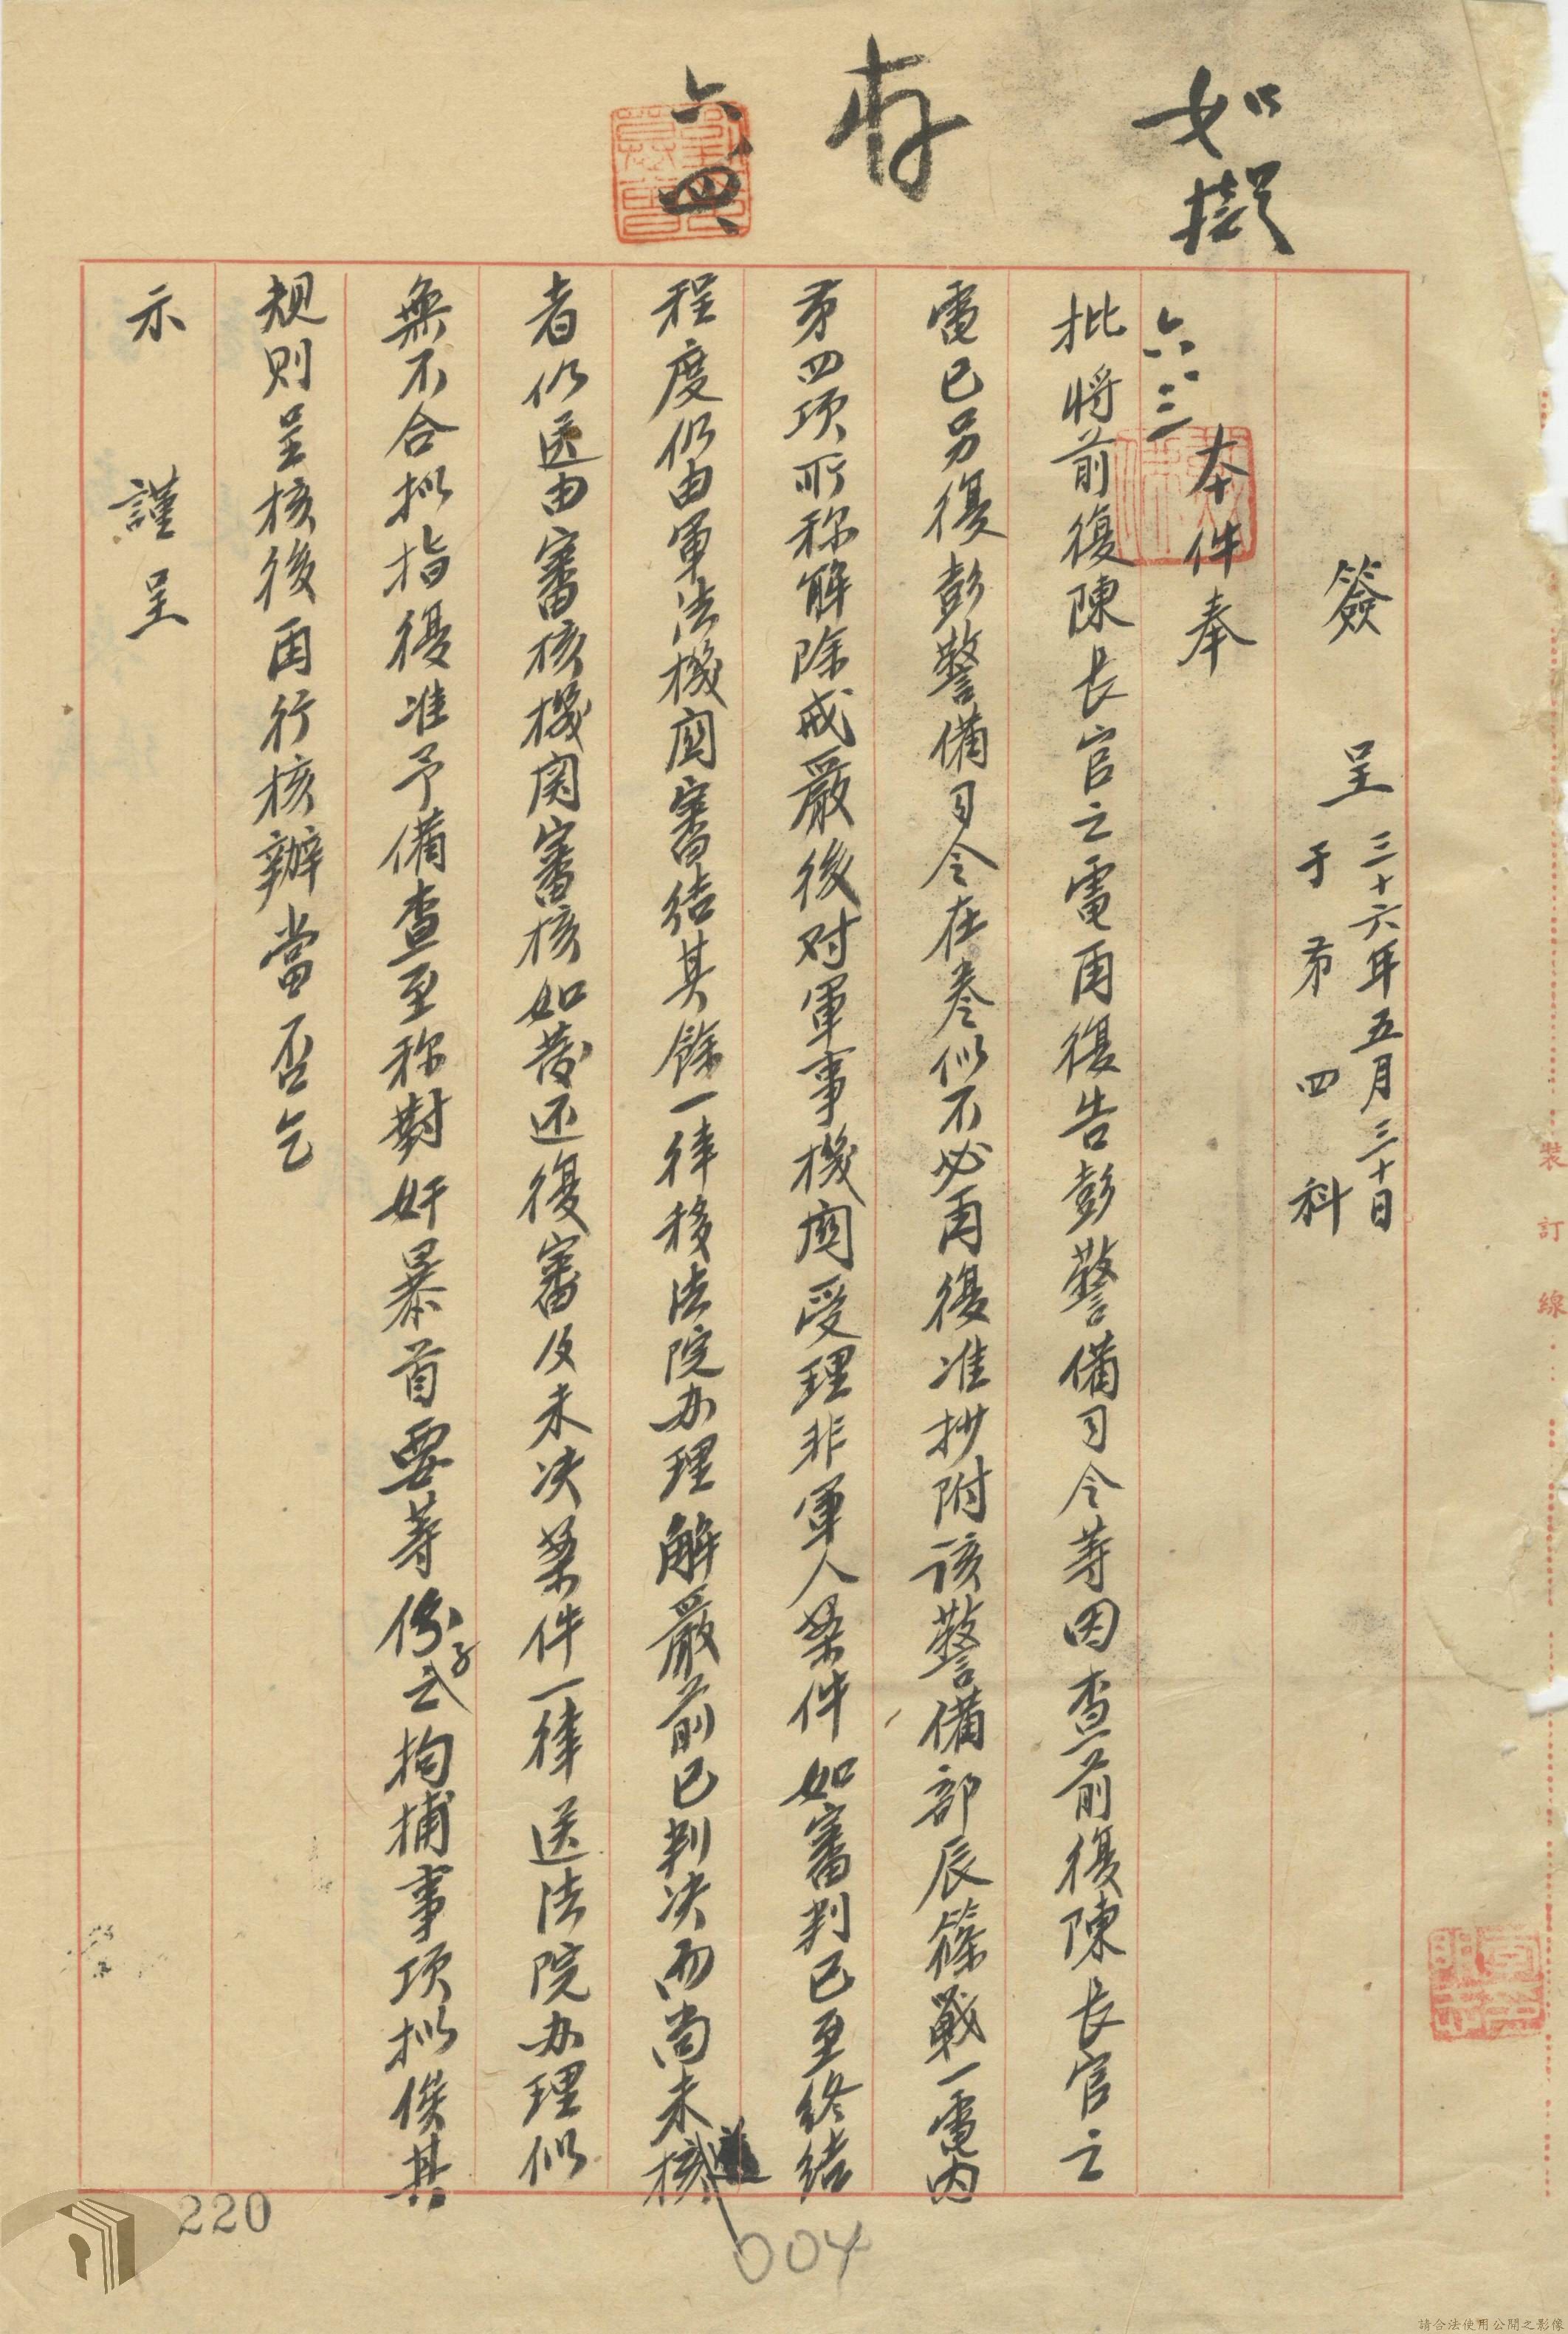 如擬
六、三
存
六、四、
簽呈 三十六年五月三十日
于第四科
本件奉
批將前復陳長官之電再復告彭警備司令等因查前復陳長官之
電已另復彭警備司令在卷似不必再復准抄附該警備部辰篠戰一電內
第四項所称解除戒嚴後对軍事機関受理非軍人案件如審判已至終結
程度仍由軍法機関審結其餘一律移法院办理解嚴前已判決而尚未核
者仍送由審核機関審核如發还復審及未決案件一律送法院办理似
無不合拟指復准予備查至称對奸暴首要等份子之拘捕事項拟俟其
規則呈核後再行核辦當否乞
示 謹呈
裝訂線
220
004
請合法使用公開之影像